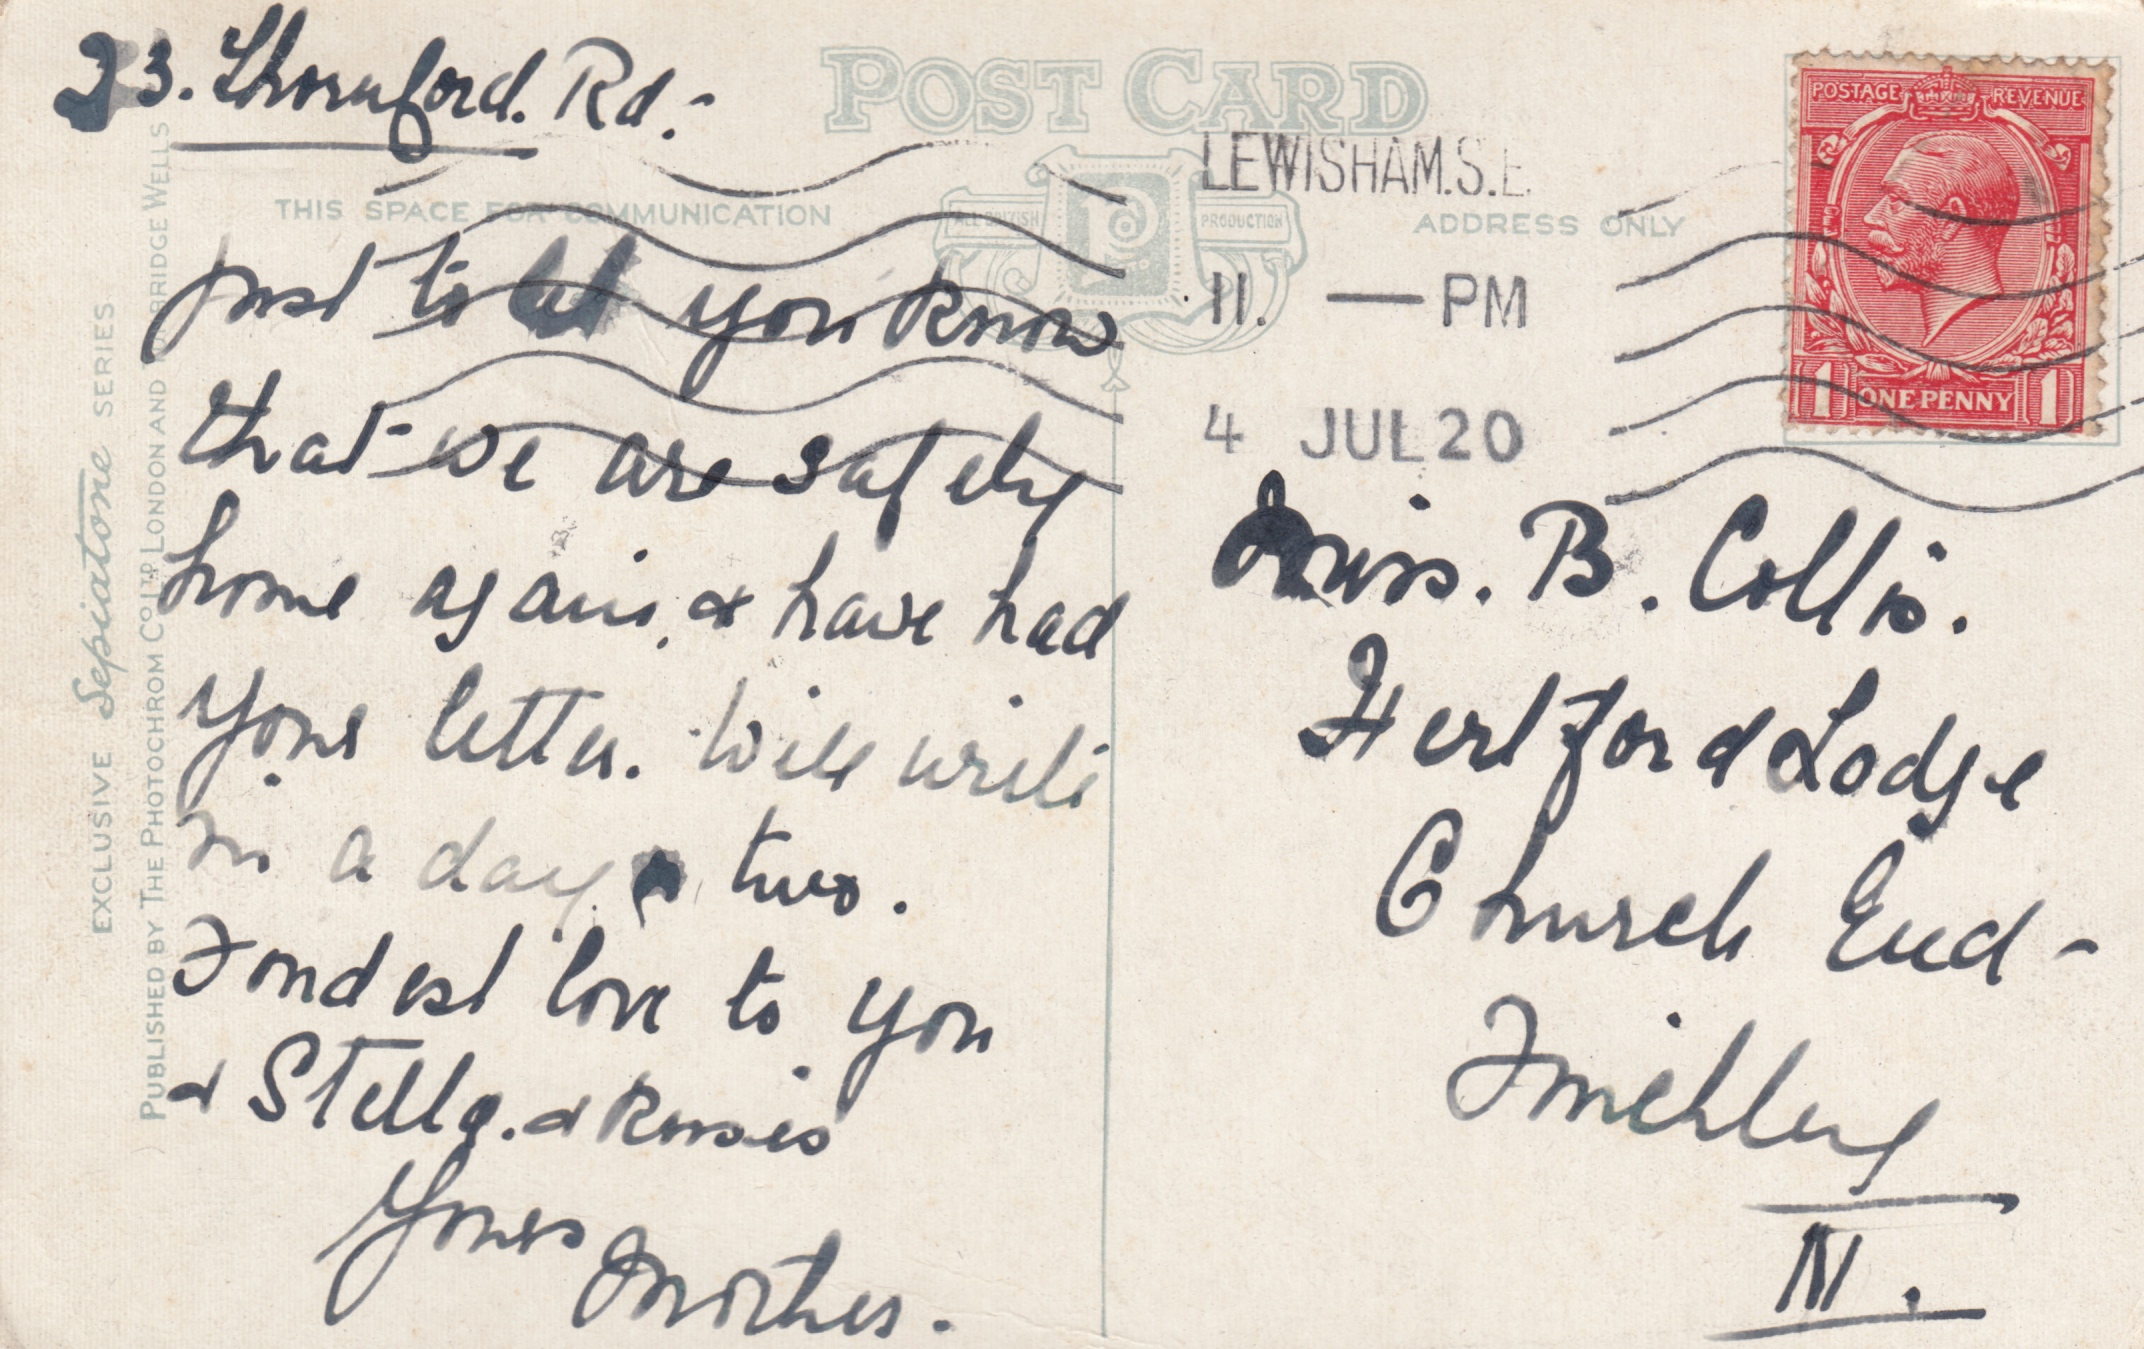 23. Thornford. Rd:-
POST CARD
THIS SPACE FOR COMMUNICATION
ALL BRITISH
PRODUCTION
ADDRESS ONLY
LEWISHAM.S.E.
11. — PM
4 JUL 20
POSTAGE
REVENUE
1
ONE PENNY
1
Just to let you know
that we are safely
home again, & have had
your letter. Will write
in a day or two.
Fondest love to you
& Stella. &
Yours
Mother.
Miss. B. Collis.
Hertford Lodge
Church End -
Finchley
N.
EXCLUSIVE Sepiatone SERIES
PUBLISHED BY THE PHOTOCHROM CO LTD LONDON AND TUNBRIDGE WELLS